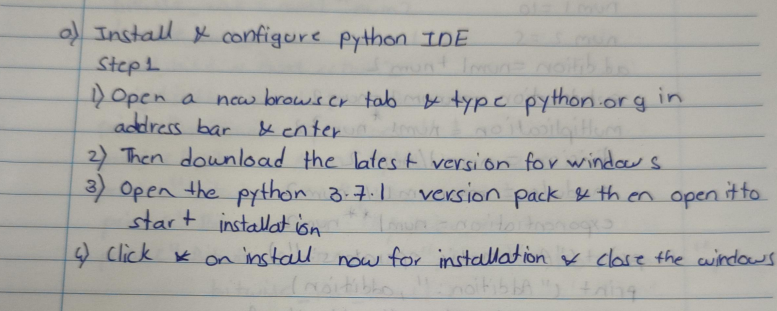 a) Install & configure python IDE
Step 1
1) Open a new browser tab & type python.org in
address bar & enter
2) Then download the latest version for windows
3) Open the python 3.7.1 version pack & then open it to
start installation
4) Click & on install now for installation & close the windows